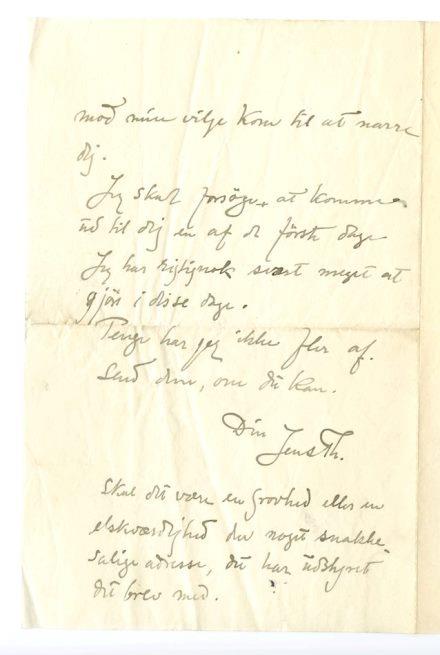 mod min vilje kom til at narre
dig.
Jeg skal forsøge at komme
ud til dig en af de første dage
Jeg har rigtignok svært meget at
gjøre i disse dage.
Penge har jeg ikke fler af.
Send dem, om du kan.
Din
Jens Th.
Skal det være en grovhed eller en
elskværdighed den noget snakke-
salige adresse, du har udstyret
dit brev med.